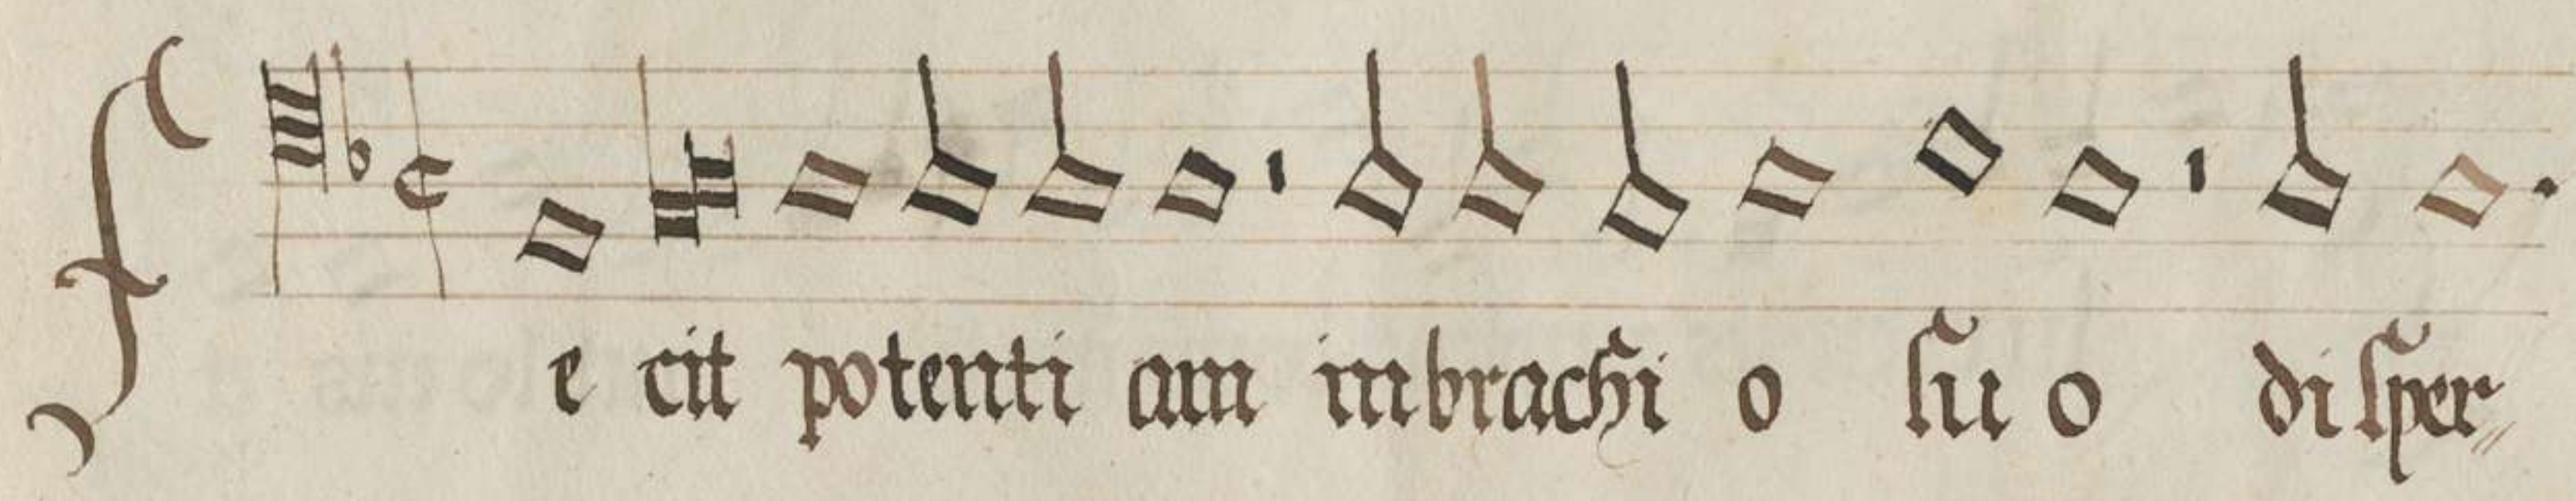 f e cit potenti am in brachi o su o di sper